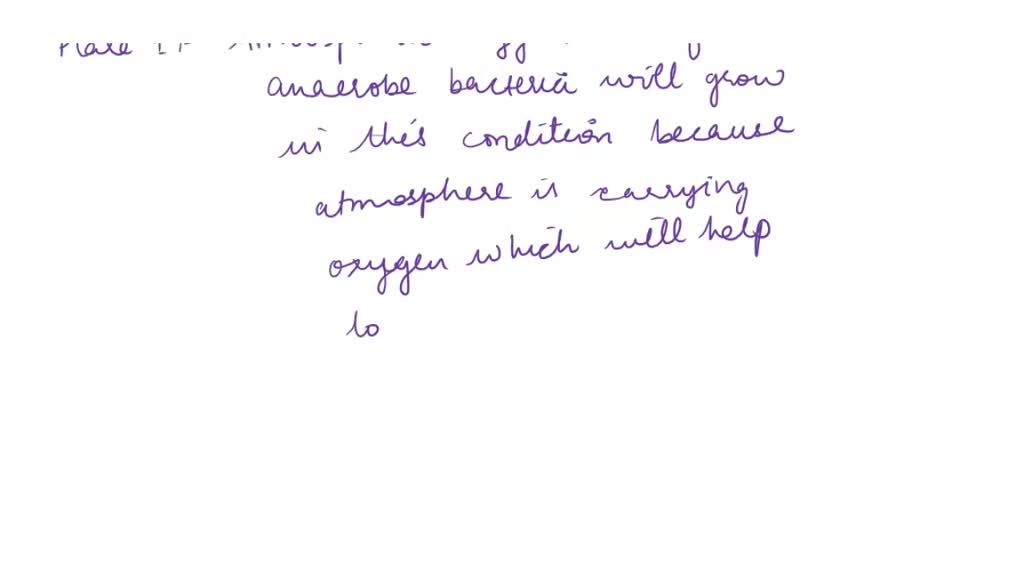 anaerobe bacteria will grow
in this condition because
atmosphere is carrying
oxygen which will help
to